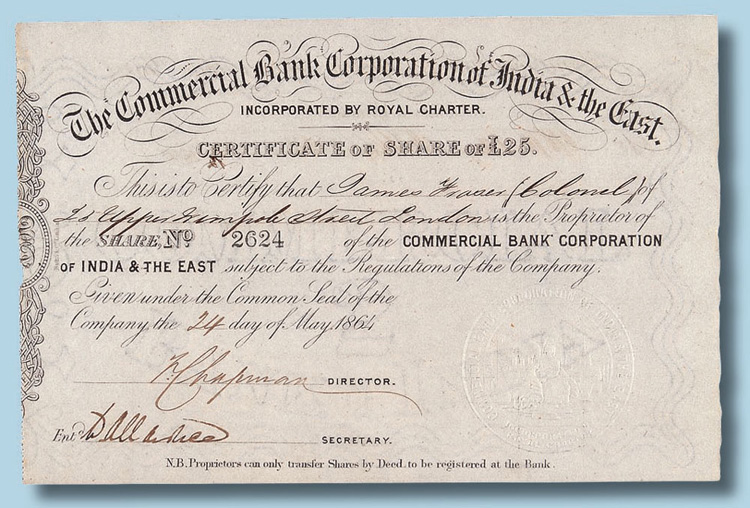 The Commercial Bank Corporation of India & the East.
INCORPORATED BY ROYAL CHARTER.
CERTIFICATE OF SHARE OF £25.
This is to Certify that James Fraser (Colonel) of
Upper Wimpole Street London is the Proprietor of
the SHARE, No. 2624 of the COMMERCIAL BANK CORPORATION
OF INDIA & THE EAST subject to the Regulations of the Company.
Given under the Common Seal of the
Company the 24 day of May 1864
Chapman DIRECTOR.
Entd. SECRETARY.
N.B. Proprietors can only transfer Shares by Deed, to be registered at the Bank.